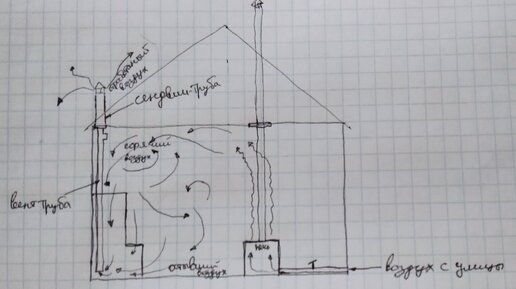 отработанный
воздух
сендвич-труба
горячий
воздух
вент труба
печь
остывший
воздух
Т
воздух с улицы